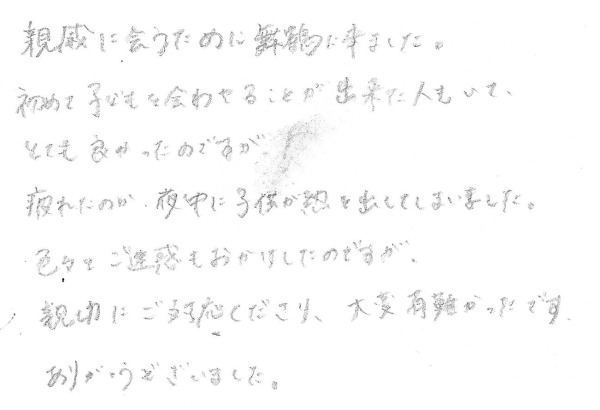 親戚に会うために舞鶴に来ました。
初めて子どもを会わせることが出来た人もいて、
とても良かったのですが
疲れたのか、夜中に子供が熱を出してしまいました。
色々とご迷惑もおかけしたのですが、
親切にご対応くださり、大変有難かったです
ありがとうございました。